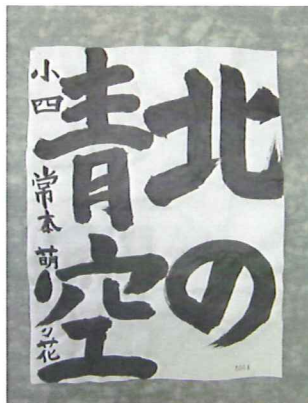 北の
青空
小四 常本 萌り花